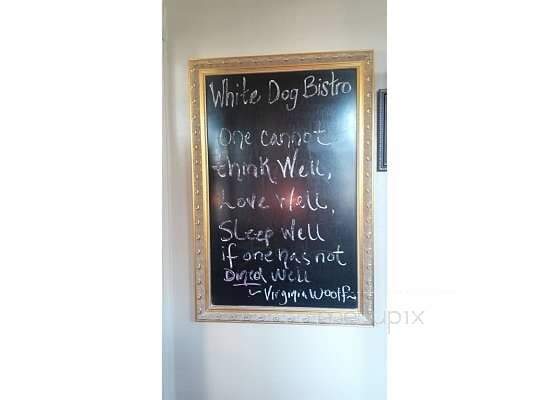 White Dog Bistro
One cannot
think Well,
Love Well,
Sleep Well
if one has not
Dined Well
~ Virginia Woolf ~